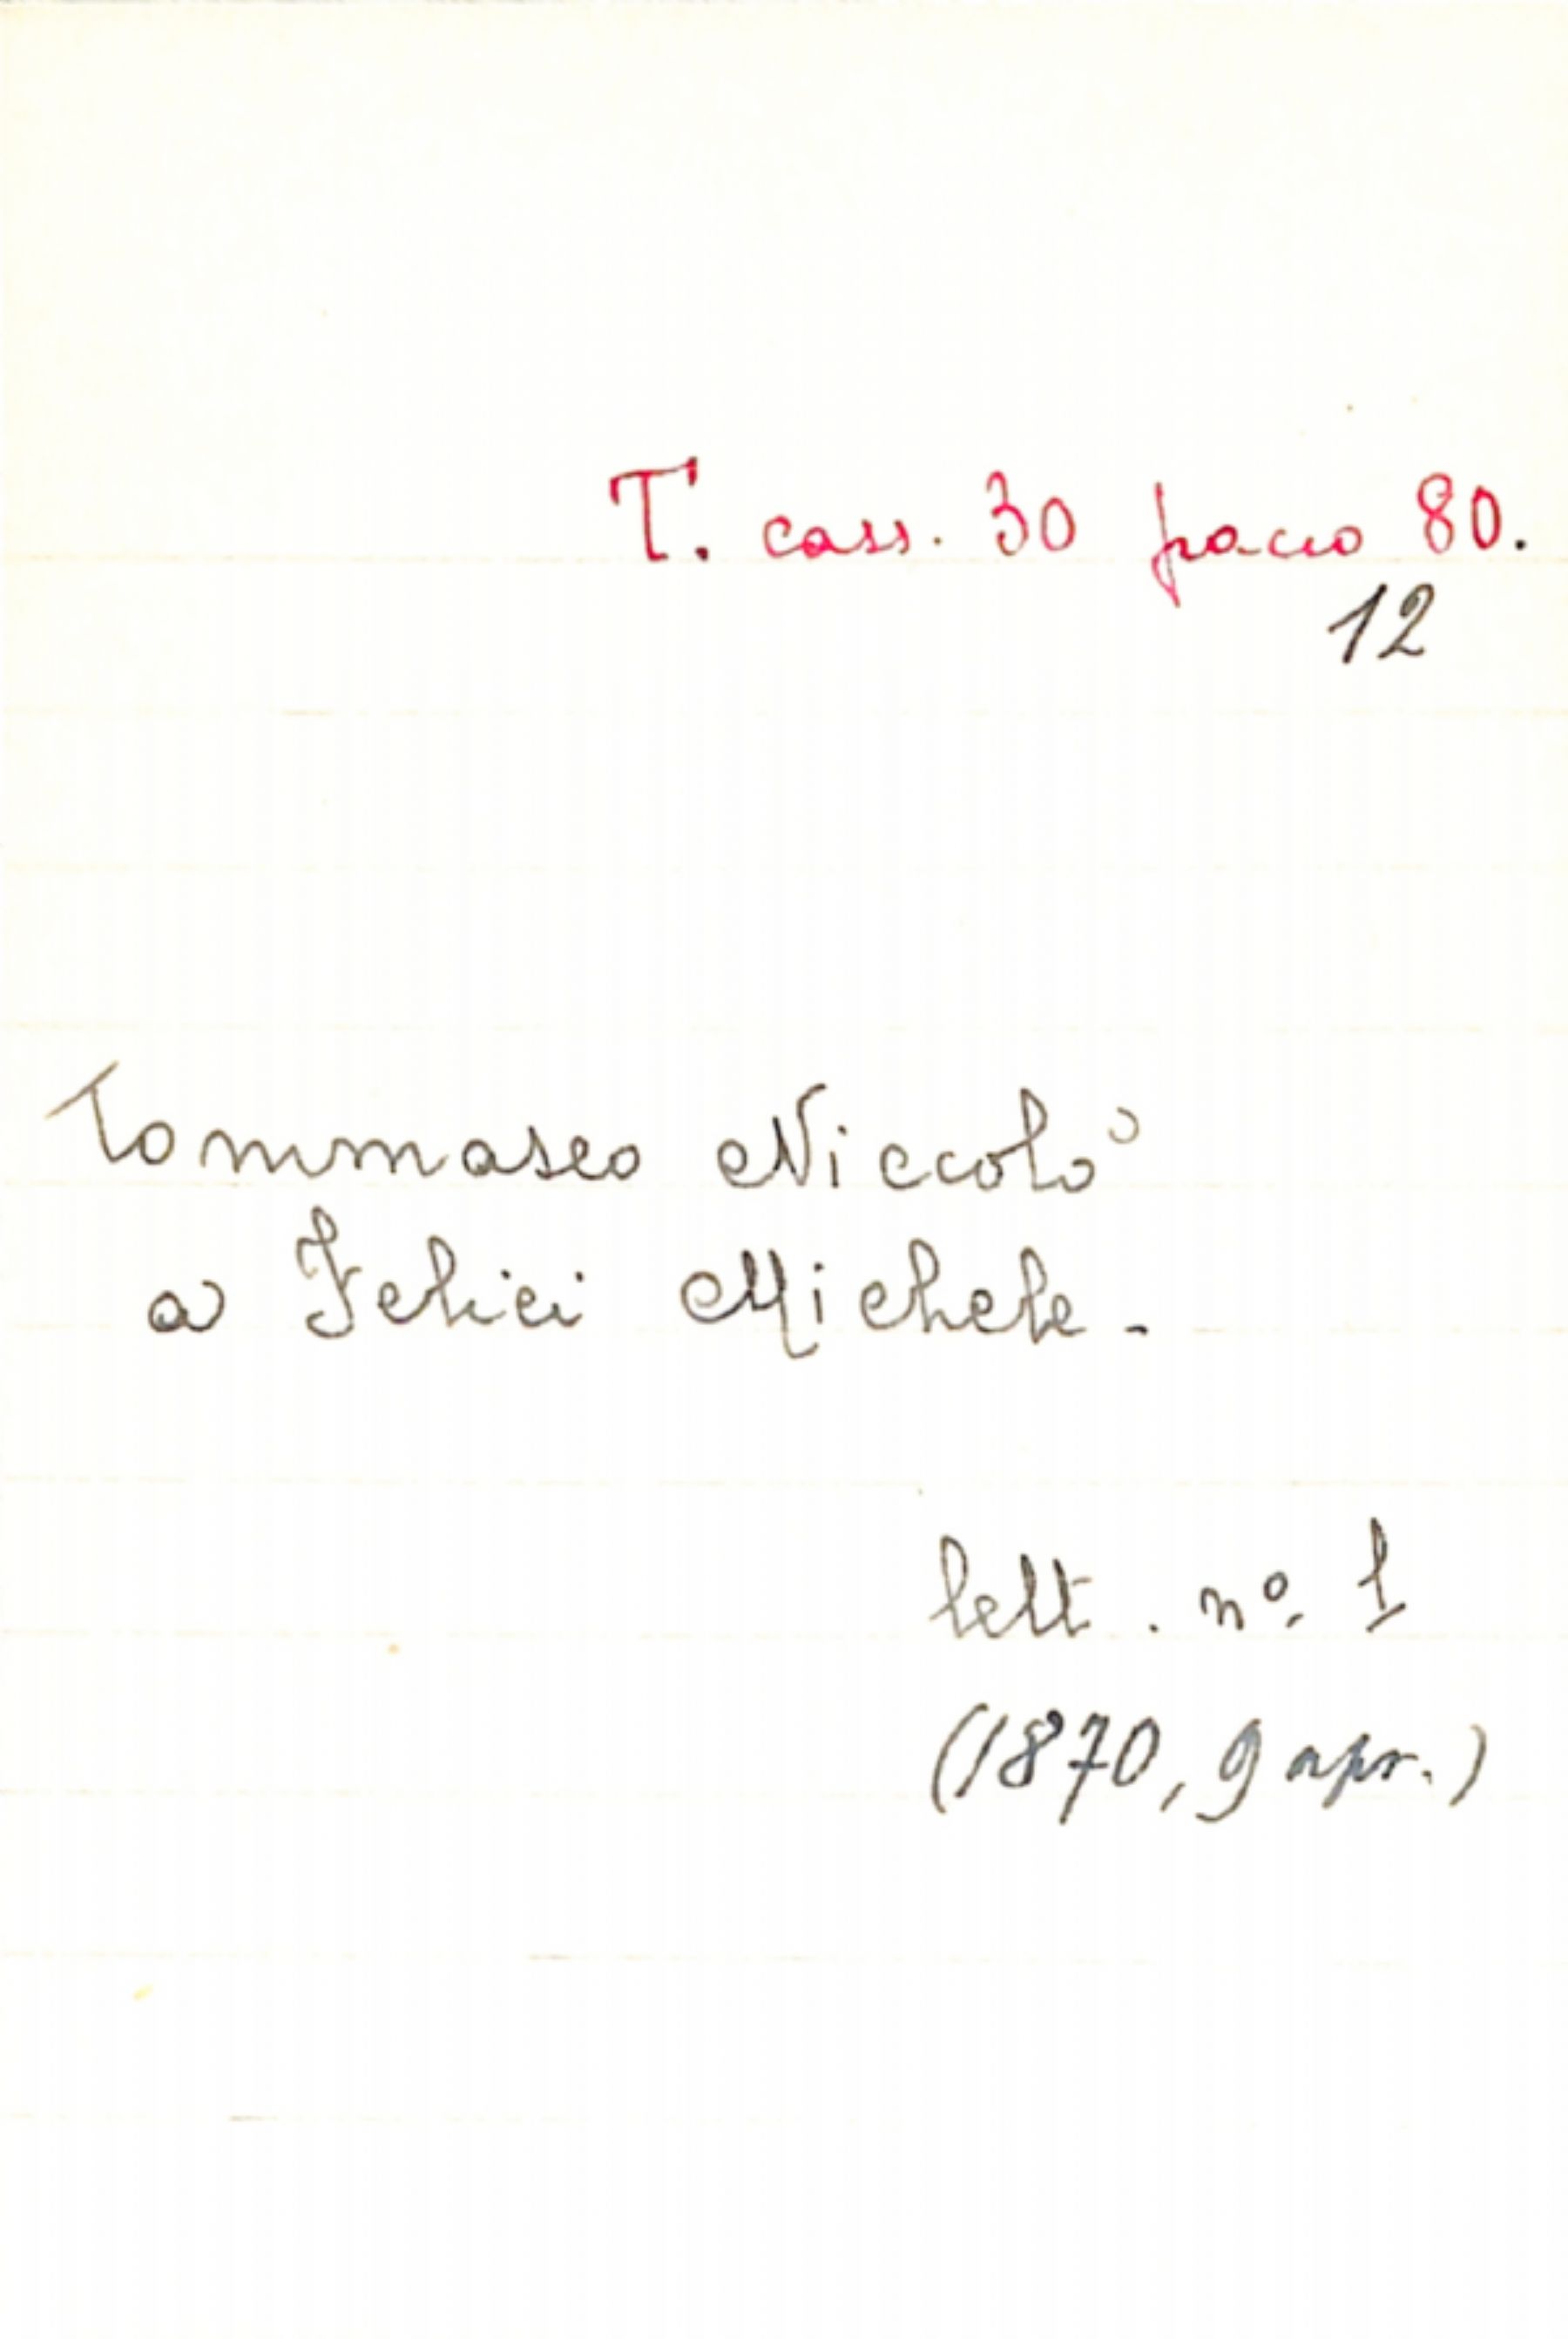 T. cass. 30 pacco 80.
12
Tommaseo Niccolò
a Felici Michele.
lett. nº. 1
(1870, 9 apr.)